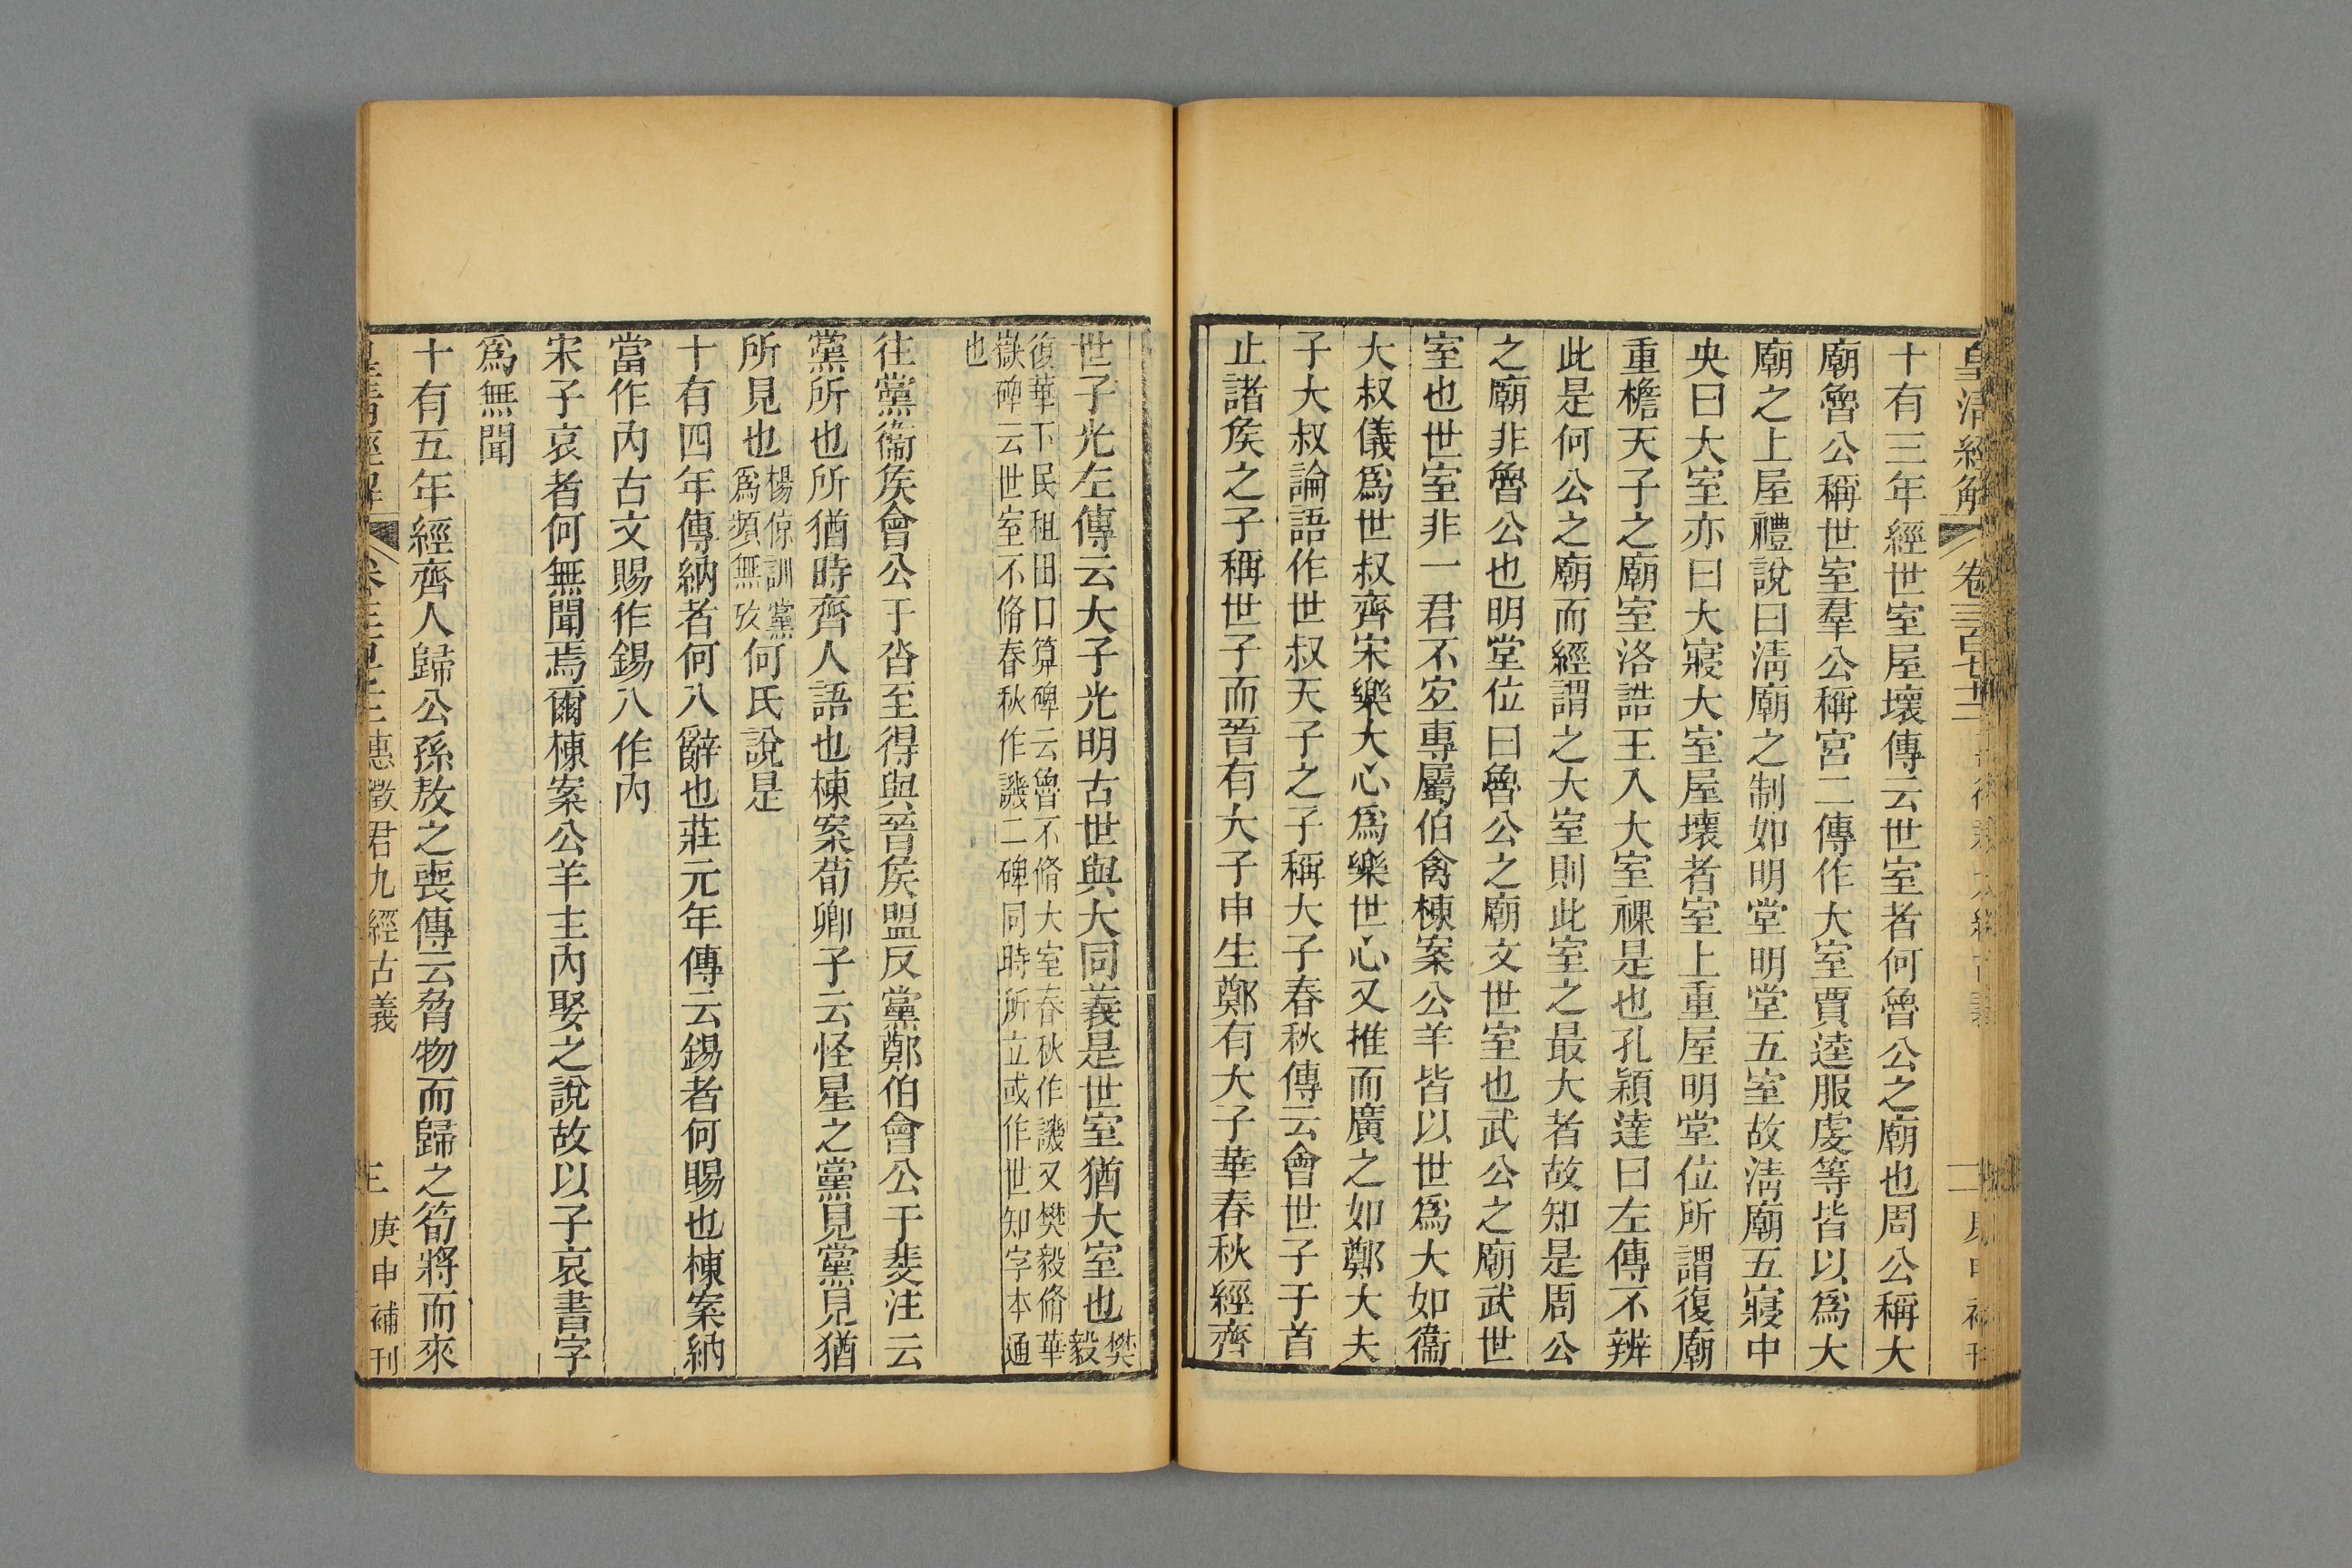 皇清經解 卷三百七十二
十有三年經世室屋壞傳云世室者何魯公之廟也周公稱大
廟魯公稱世室羣公稱宮二傳作大室賈逵服虔等皆以爲大
廟之上屋禮說曰淸廟之制如明堂明堂五室故淸廟五寢中
央曰大室亦曰大寢大室屋壞者室上重屋明堂位所謂復廟
重檐天子之廟室洛誥王入大室祼是也孔穎達曰左傳不辨
此是何公之廟而經謂之大室則此室之最大者故知是周公
之廟非魯公也明堂位曰魯公之廟文世室也武公之廟武世
室也世室非一君不㝎專屬伯禽棟案公羊皆以世爲大如衞
大叔儀爲世叔齊宋樂大心爲樂世心又推而廣之如鄭大夫
子大叔論語作世叔天子之子稱大子春秋傳云會世子于首
止諸矦之子稱世子而晉有大子申生鄭有大子華春秋經齊
世子光左傳云大子光明古世與大同義是世室猶大室也樊毅
復華下民租田口算碑云魯不脩大室春秋作譏又樊毅脩華
嶽碑云世室不脩春秋作譏二碑同時所立或作世知字本通
也
往黨衞矦會公于沓至得與晉矦盟反黨鄭伯會公于斐注云
黨所也所猶時齊人語也棟案荀卿子云怪星之黨見黨見猶
所見也楊倞訓黨爲頻無攷何氏說是
十有四年傳納者何入辭也莊元年傳云錫者何賜也棟案納
當作內古文賜作錫入作內
宋子哀者何無聞焉爾棟案公羊主內娶之說故以子哀書字
爲無聞
十有五年經齊人歸公孫敖之喪傳云脅物而歸之筍將而來
皇淸經解 惠徵君九經古義 三 庚申補刊